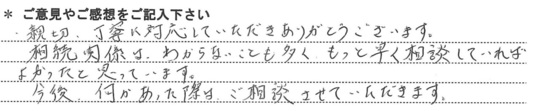 * ご意見やご感想をご記入下さい
・親切、丁寧に対応していただきありがとうございます。
相続関係は、わからないことも多く もっと早く相談していれば
よかったと思っています。
今後、何かあった際は、ご相談させていただきます。